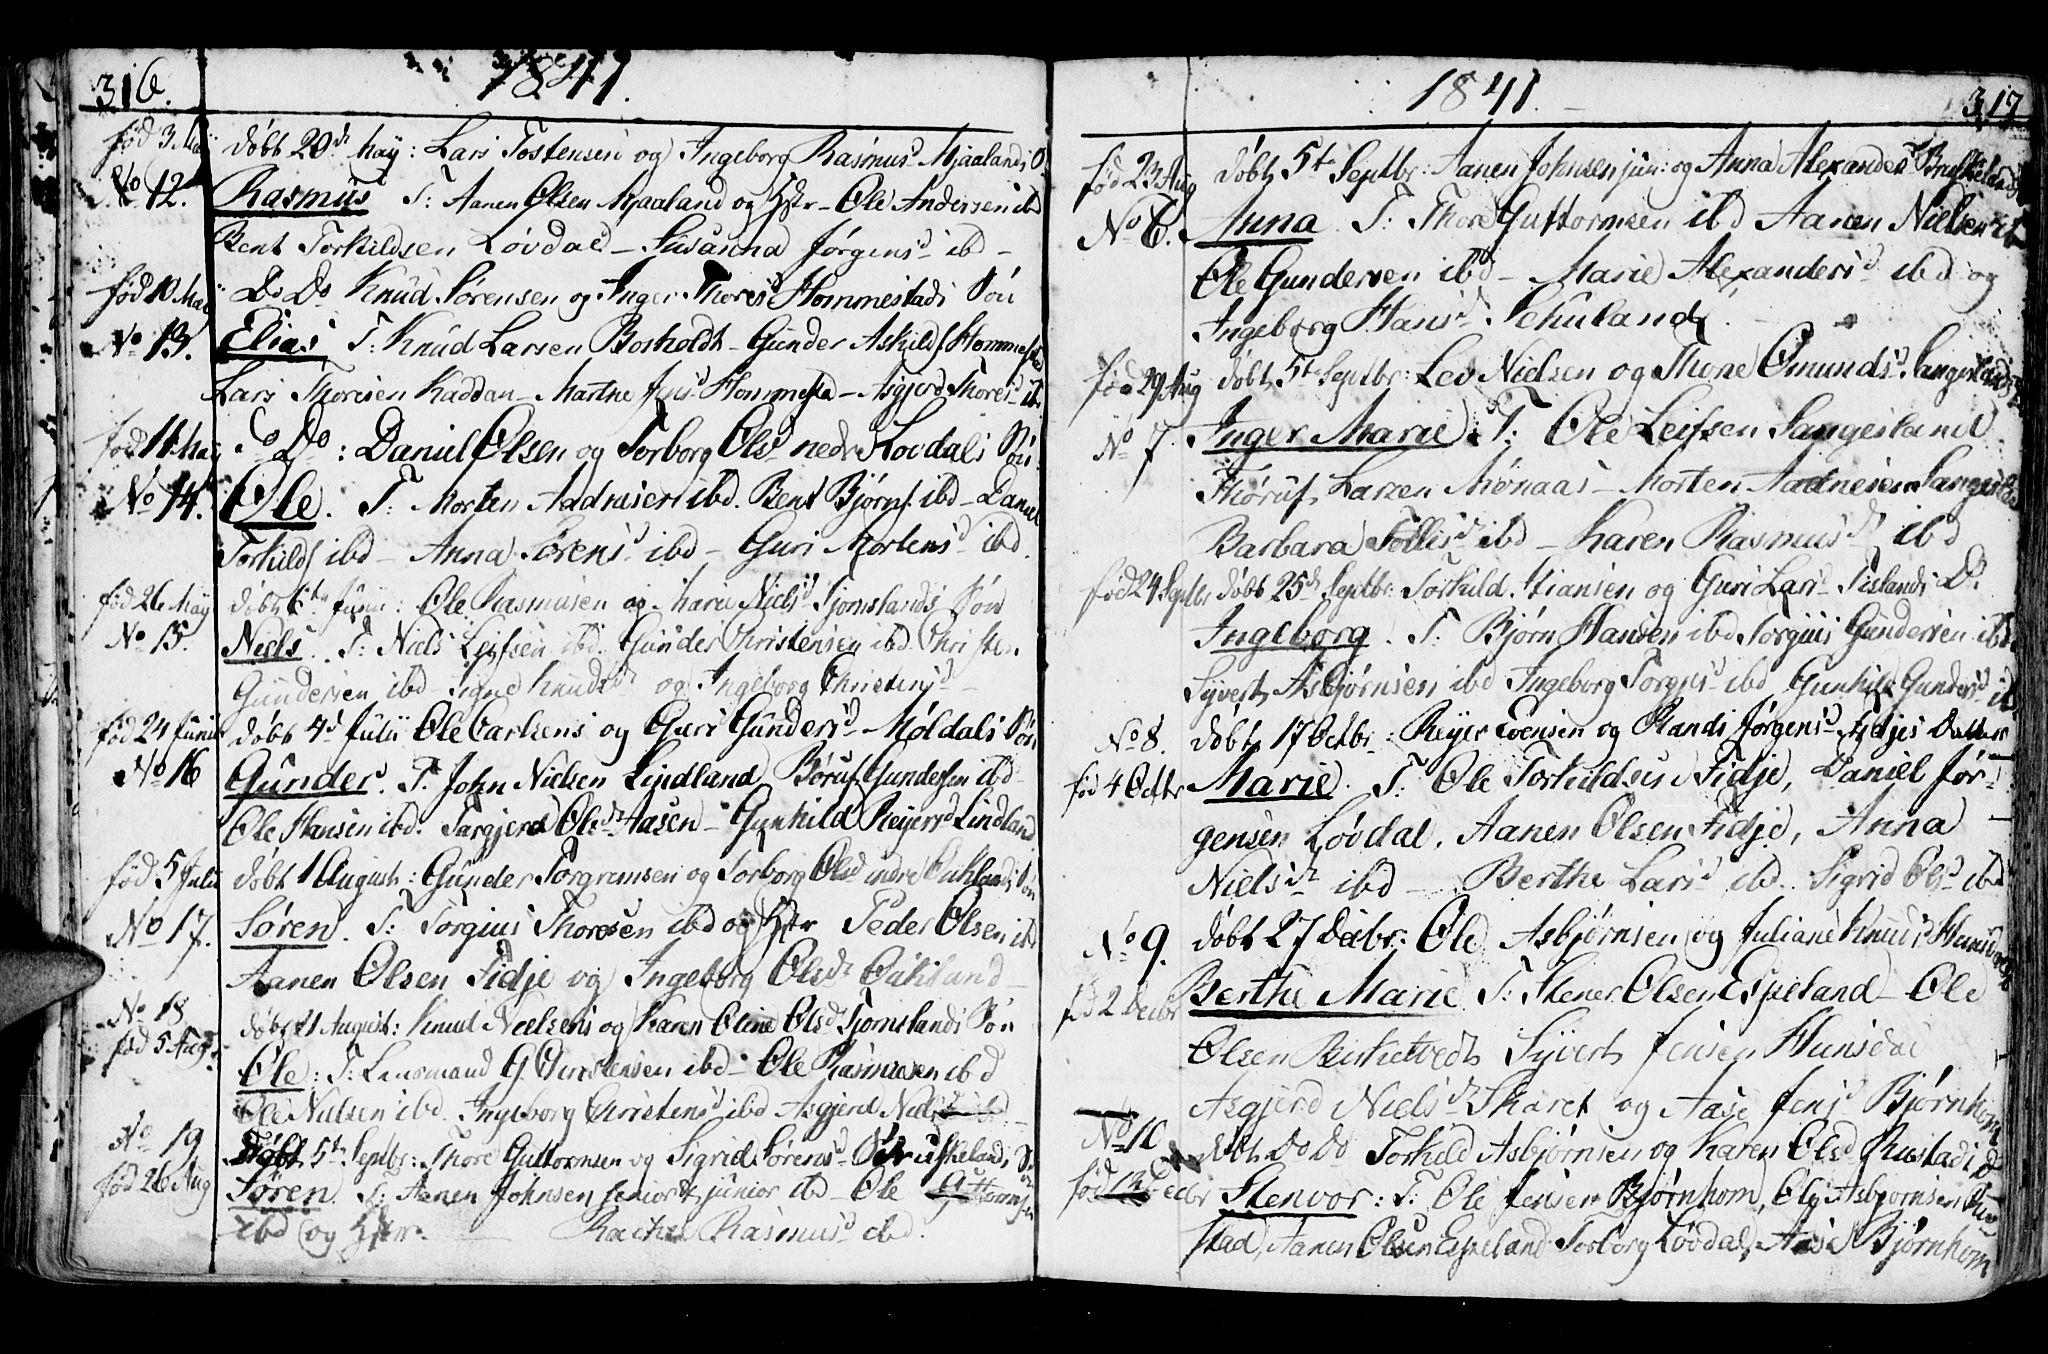 316. 1841.
fød 3 May døbt 20de May: Lars Tostensen og Ingeborg Rasmusd Mjaalands
No 12. Rasmus T: Aanen Olsen Mjaaland og Hstr - Ole Andersen ibd
Bent Torkildsen Løvdal - Susanna Jørgensd ibd -
fød 10 May Do Do Knud Sørensen og Inger Thoresd Hommestads Søn
No 13. Elias T: Knud Larsen Bosholdt - Gunder Askilds Hommest
Lars Thoresen Kaddan - Marthe Jensd Hommestd - Asgjerd Thoresd ib
fød 11 May Do Do: Daniel Olsen og Torborg Olsd nedr Løvdals Søn
No 14. Ole. T: Morten Aadnesen ibd. Bent Bjørns. ibd - Daniel
Torkilds ibd - Anna Sørensd ibd - Guri Mortensd ibd.
fød 26 May døbt 6te Junii: Ole Rasmusen og Marie Nielsd Tjomslands Søn
No 15. Niels. T: Niels Leifsen ibd. Gunder Christensen ibd. Christen
Gundersen ibd - Signe Knudsdt og Ingeborg Christensd -
fød 24 Junii døbt 4de Julii Ole Carlsens og Guri Gundersd Moldals Søn
No 16 Gunder. T. John Nielsen Lindland, Børuf Gundersen ibd
Ole Hansen ibd. Targjerd Olsdt Aasen - Gunhild Reyersd Lindland
fød 5 Julii døbt 1 August: Gunder Torgrimsen og Torborg Olsd indre Øuhlands Søn
No 17. Søren. T: Torgius Thoresen ibd og Hstr Peder Olsen ib
Aanen Olsen Fidje og Ingeborg Olsdt Øuhland -
No 18 døbt 21 August: Knud Nielsens og Karen Oline Olsd Tjomslands Søn
fød 5 Aug. Ole: T: Lensmand G. Christensen ibd - Ole Rasmusen ibd
Ole Nielsen ibd. Ingeborg Christensd ibd Asgjerd Nielsd ibd
No 19 Døbt 5te Septbr: Thore Guttormsen og Sigrid Sørensd Bruskelands Søn
fød 26 Aug Søren. T: Aanen Johnsen senior & junior ibd - Ole Guttormsen
ibd og Hstr. Rachel Rasmusd ibd.
1841. 317
fød 23 Aug døbt 5te Septbr: Aanen Johnsen jun: og Anna Alexandersd Bruskelands
No 6. Anna T: Thore Guttormsen ibd Aanen Nielsen ib
Ole Gundersen ibd - Marie Alexandersd ibd og
Ingeborg Hansd Schuland.
fød 29 Aug døbt 5te Septbr: Lev Nielsen og Thone Omundsd Sangeslands
No 7 Inger Marie T: Ole Leifsen Sangesland
Larsen Mønaas - Morten Aadnesen Sangesl
Barbara Tollisd ibd - Karen Rasmusdt ibd
fød 24 Septbr døbt 25de Septbr: Torkild Hansen og Guri Larsd Tislands D.
Ingeborg. T. Bjørn Hansen ibd Torguis Gundersen ibd
Syvert Asbjørnsen ibd Ingeborg Torgjisd ibd Gunhild Gundersd ib
No 8. døbt 17 Octbr: Reyer Evensen og Randi Jørgensd Fidjes Datter
fød 4 Octbr Marie. T: Ole Torkildsen Fidje, Daniel Jør-
gensen Løvdal. Aanen Olsen Fidje, Anna
Nielsdt ibd - Berthe Larsd ibd. Sigrid Olsd ibd
No 9. døbt 27 Decbr: Ole Asbjørnsen og Juliane Knudsd Hunsdals
fød 2 Decbr Berthe Marie T: Stener Olsen Espeland - Ole
Olsen Birketvedt Syvert Jensen Hunsdal
Asgjerd Nielsdt Skaret og Aase Jensd Bjørnhom
No 10 døbt Do Do Torkild Asbjørnsen og Karen Olsd Rustads d
fød Decbr Stenvor: T: Ole Jensen Bjørnhom, Ole Asbjørnsen Rus-
stad, Aanen Olsen Espeland Torborg Løvdal, Aase Bjørnhom